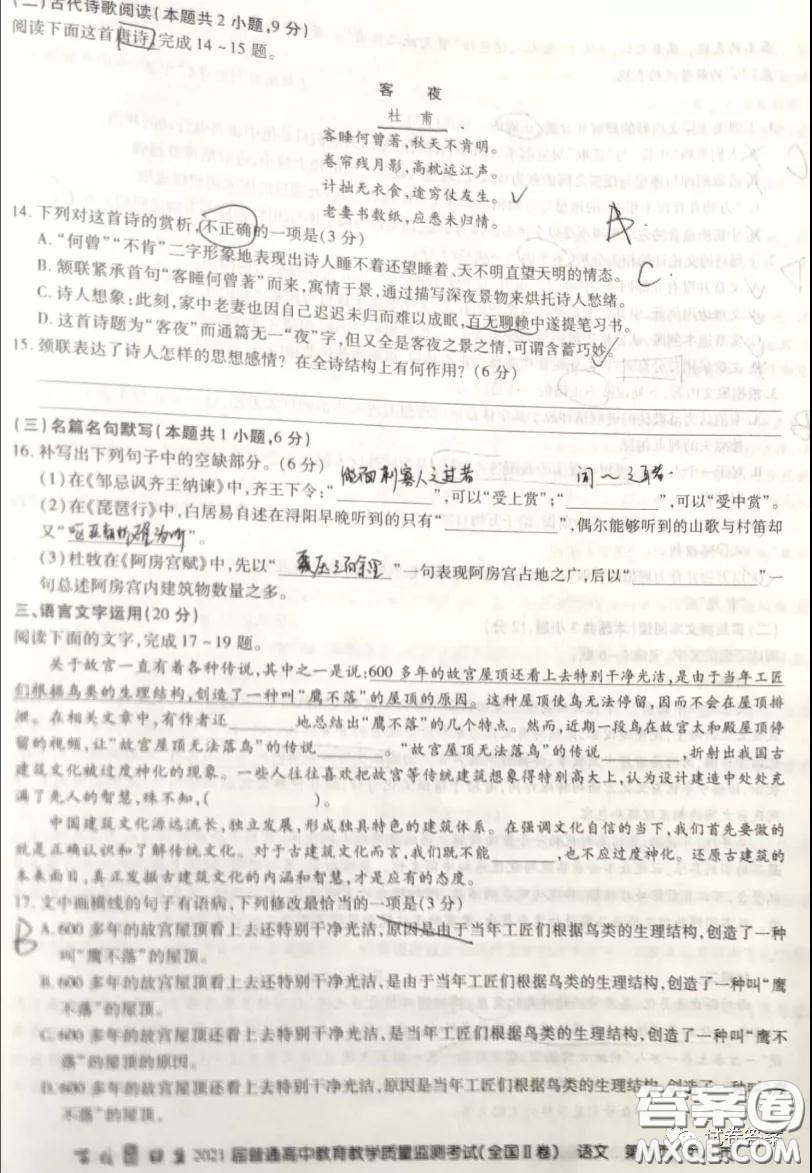 (二)古代诗歌阅读(本题共2小题,9分)
阅读下面这首唐诗,完成14~15题。
客 夜
杜 甫
客睡何曾著,秋天不肯明。
卷帘残月影,高枕远江声。
计拙无衣食,途穷仗友生。
老妻书数纸,应悉未归情。
14. 下列对这首诗的赏析,不正确的一项是(3分)
A. “何曾”“不肯”二字形象地表现出诗人睡不着还望睡着、天不明直望天明的情态。
B. 颔联紧承首句“客睡何曾著”而来,寓情于景,通过描写深夜景物来烘托诗人愁绪。
C. 诗人想象:此刻,家中老妻也因自己迟迟未归而难以成眠,百无聊赖中遂提笔习书。
D. 这首诗题为“客夜”而通篇无一“夜”字,但又全是客夜之景之情,可谓含蓄巧妙。
A.
C.
15. 颈联表达了诗人怎样的思想感情?在全诗结构上有何作用?(6分)
(三)名篇名句默写(本题共1小题,6分)
16. 补写出下列句子中的空缺部分。(6分)
(1)在《邹忌讽齐王纳谏》中,齐王下令:“能面刺寡人之过者”,可以“受上赏”;“”,可以“受中赏”。
(2)在《琵琶行》中,白居易自述在浔阳早晚听到的只有“”,偶尔能够听到的山歌与村笛却
又“呕哑嘲哳难为听”。
(3)杜牧在《阿房宫赋》中,先以“覆压三百余里”一句表现阿房宫占地之广,后以“”一
句总述阿房宫内建筑物数量之多。
三、语言文字运用(20分)
阅读下面的文字,完成17~19题。
关于故宫一直有着各种传说,其中之一是说:600多年的故宫屋顶还看上去特别干净光洁,是由于当年工匠
们根据鸟类的生理结构,创造了一种叫“鹰不落”的屋顶的原因。这种屋顶使鸟无法停留,因而不会在屋顶排
泄。在相关文章中,有作者还______地总结出“鹰不落”的几个特点。然而,近期一段鸟在故宫太和殿屋顶停
留的视频,让“故宫屋顶无法落鸟”的传说______。“故宫屋顶无法落鸟”的传说______,折射出我国古
建筑文化被过度神化的现象。一些人往往喜欢把故宫等传统建筑想象得特别高大上,认为设计建造中处处充
满了先人的智慧,殊不知,( )。
中国建筑文化源远流长,独立发展,形成独具特色的建筑体系。在强调文化自信的当下,我们首先要做的
就是正确认识和了解传统文化。对于古建筑文化而言,我们既不能______,也不应过度神化。还原古建筑的
本来面目,真正发掘古建筑文化的内涵和智慧,才是应有的态度。
17. 文中画横线的句子有语病,下列修改最恰当的一项是(3分)
B
A. 600多年的故宫屋顶看上去还特别干净光洁,原因是由于当年工匠们根据鸟类的生理结构,创造了一种
叫“鹰不落”的屋顶。
B. 600多年的故宫屋顶看上去还特别干净光洁,是由于当年工匠们根据鸟类的生理结构,创造了一种叫“鹰
不落”的屋顶。
C. 600多年的故宫屋顶还看上去特别干净光洁,是当年工匠们根据鸟类的生理结构,创造了一种叫“鹰不
落”的屋顶的原因。
D. 600多年的故宫屋顶还看上去特别干净光洁,原因是当年工匠们根据鸟类的生理结构,创造了一种叫“鹰
不落”的屋顶。
2021届普通高中教育教学质量监测考试(全国Ⅱ卷) 语文 第
试卷答案
答案圈
MXQE.COM